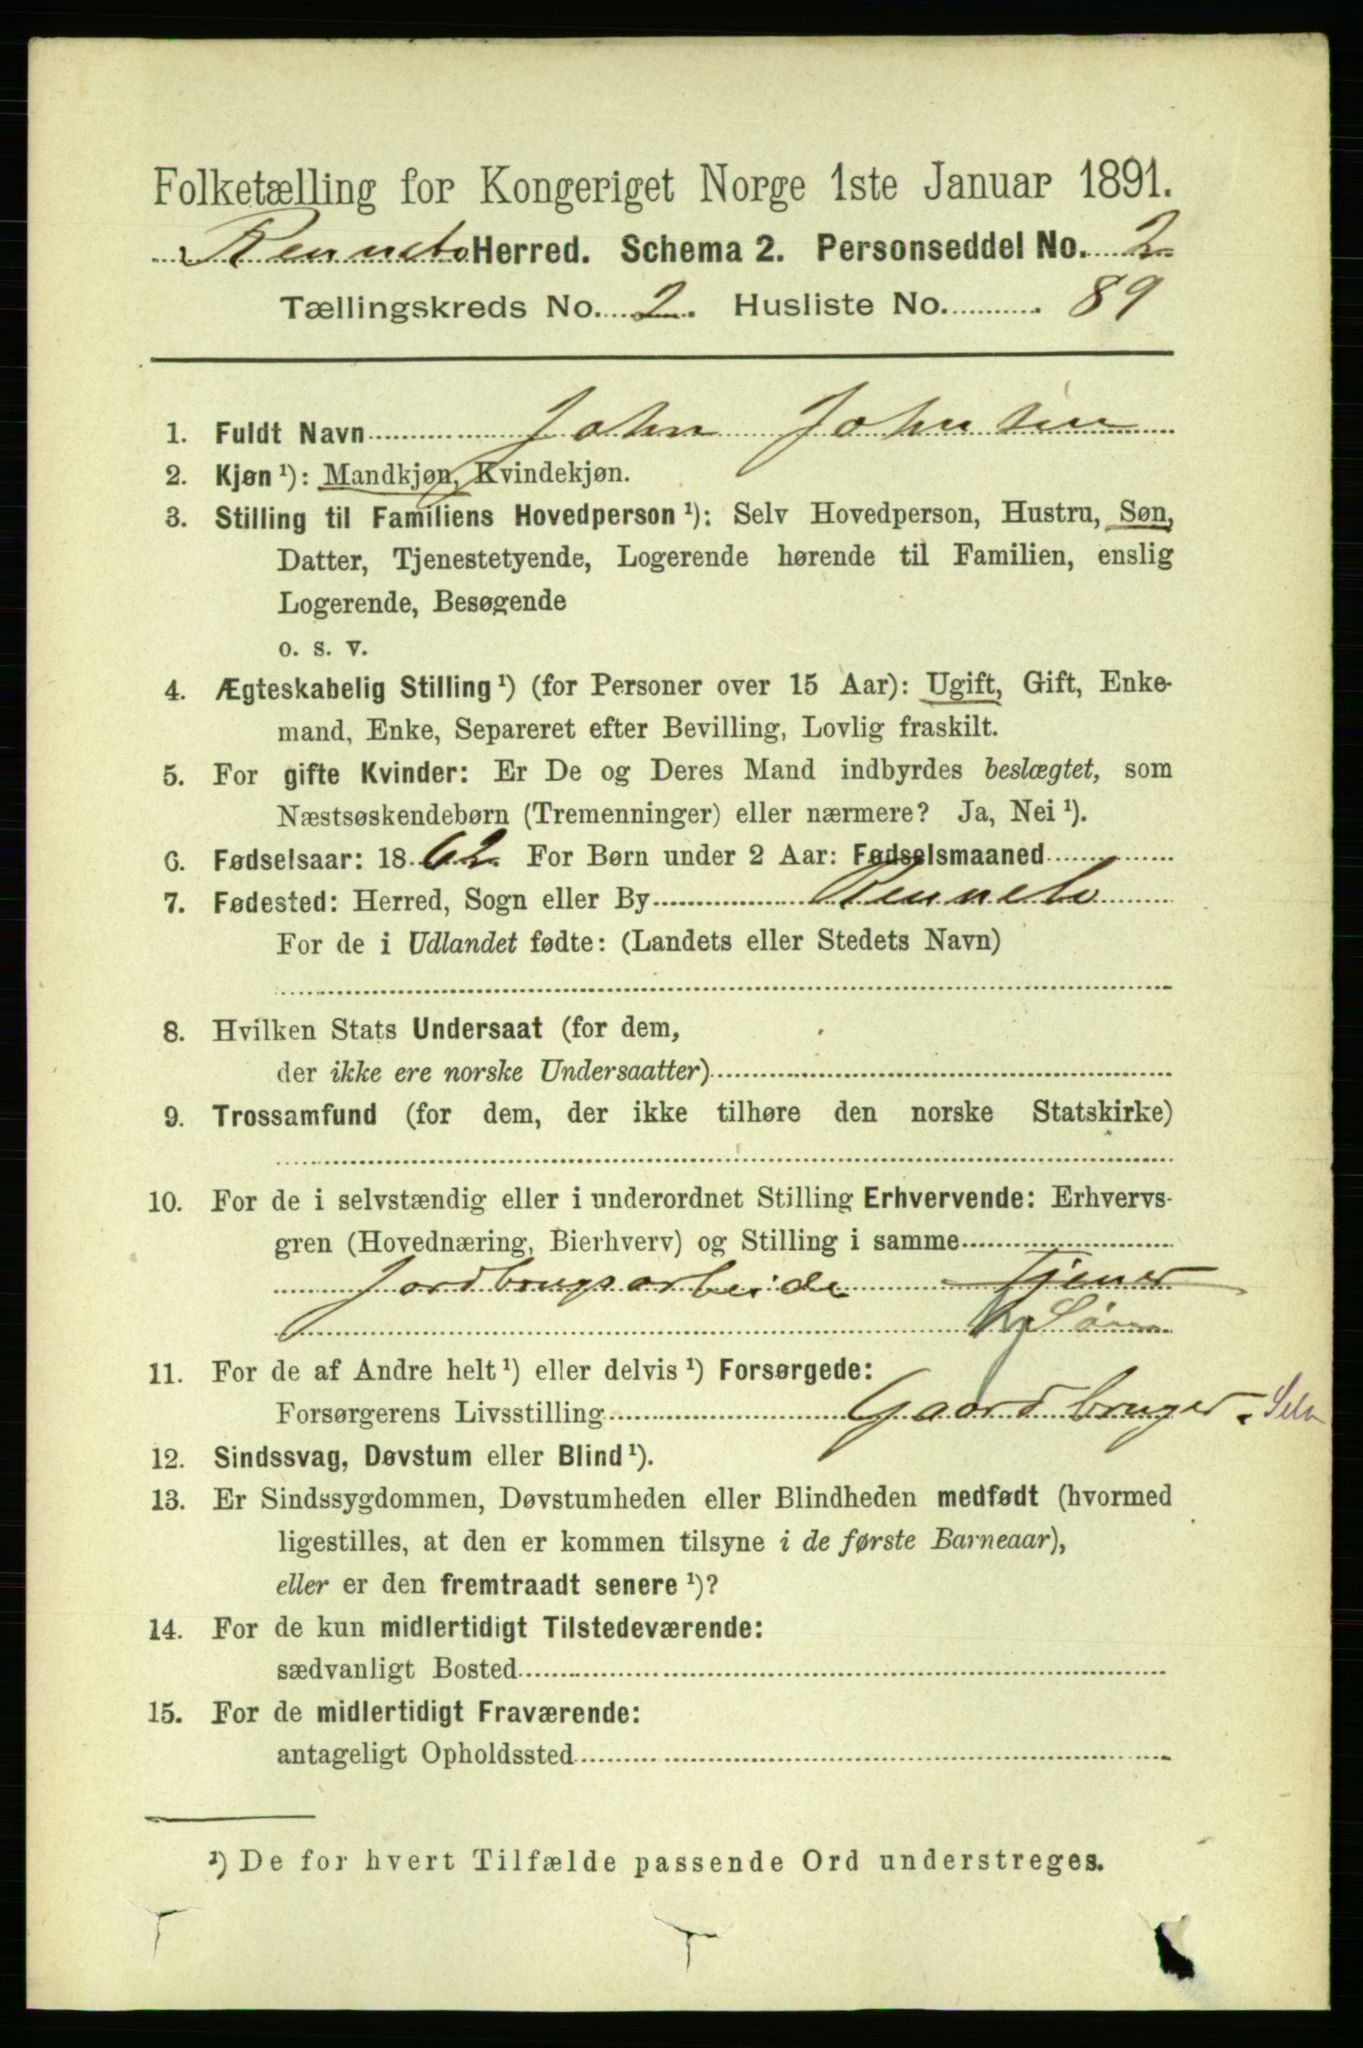 Folketælling for Kongeriget Norge 1ste Januar 1891.
Rennebo Herred. Schema 2. Personseddel No. 2
Tællingskreds No. 2. Husliste No. 89
1. Fuldt Navn John Johnsen
2. Kjøn ¹): Mandkjøn, Kvindekjøn.
3. Stilling til Familiens Hovedperson ¹): Selv Hovedperson, Hustru, Søn,
Datter, Tjenestetyende, Logerende hørende til Familien, enslig
Logerende, Besøgende
o. s. v.
4. Ægteskabelig Stilling ¹) (for Personer over 15 Aar): Ugift, Gift, Enke-
mand, Enke, Separeret efter Bevilling, Lovlig fraskilt.
5. For gifte Kvinder: Er De og Deres Mand indbyrdes beslægtet, som
Næstsøskendebørn (Tremenninger) eller nærmere? Ja, Nei ¹).
6. Fødselsaar: 1862 For Børn under 2 Aar: Fødselsmaaned
7. Fødested: Herred, Sogn eller By Rennebo
For de i Udlandet fødte: (Landets eller Stedets Navn)
8. Hvilken Stats Undersaat (for dem,
der ikke ere norske Undersaatter)
9. Trossamfund (for dem, der ikke tilhøre den norske Statskirke)
10. For de i selvstændig eller i underordnet Stilling Erhvervende: Erhvervs-
gren (Hovednæring, Bierhverv) og Stilling i samme
Jordbrugsarbeide Tjener
Søn
11. For de af Andre helt ¹) eller delvis ¹) Forsørgede:
Forsørgerens Livsstilling Gaardbruger. Selv
12. Sindssvag, Døvstum eller Blind ¹).
13. Er Sindssygdommen, Døvstumheden eller Blindheden medfødt (hvormed
ligestilles, at den er kommen tilsyne i de første Barneaar),
eller er den fremtraadt senere ¹)?
14. For de kun midlertidigt Tilstedeværende:
sædvanligt Bosted
15. For de midlertidigt Fraværende:
antageligt Opholdssted
¹) De for hvert Tilfælde passende Ord understreges.